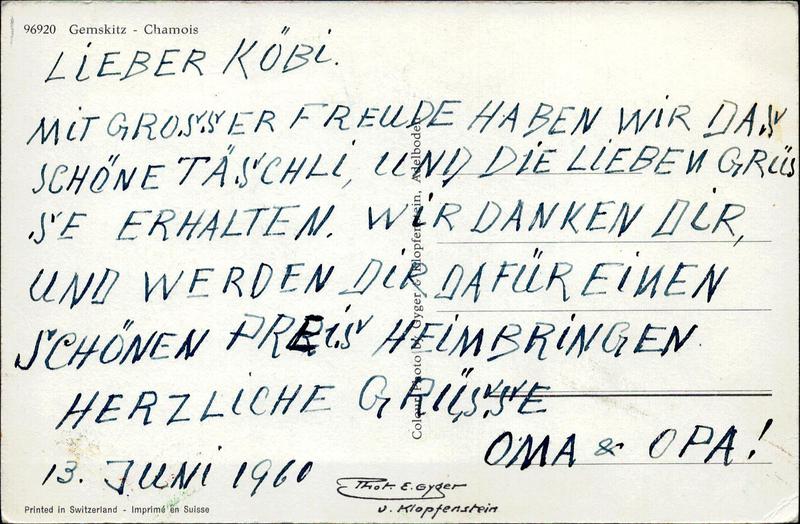 96920 Gemskitz - Chamois
LIEBER KÖBI.
MIT GROSSER FREUDE HABEN WIR DAS
SCHÖNE TÄSCHLI, UND DIE LIEBEN GRÜS
SE ERHALTEN. WIR DANKEN DIR,
UND WERDEN DIR DAFÜR EINEN
SCHÖNEN PREIS HEIMBRINGEN.
HERZLICHE GRÜSSE
OMA & OPA!
13. JUNI 1960
Phot. E. Gyger
u. Klopfenstein
Printed in Switzerland - Imprimé en Suisse